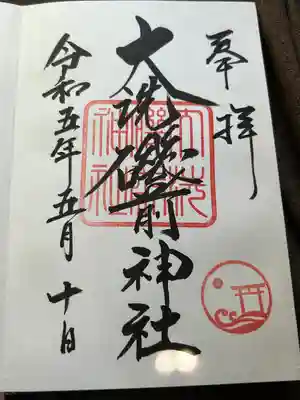 奉拝
大洗磯前神社
令和五年五月十日